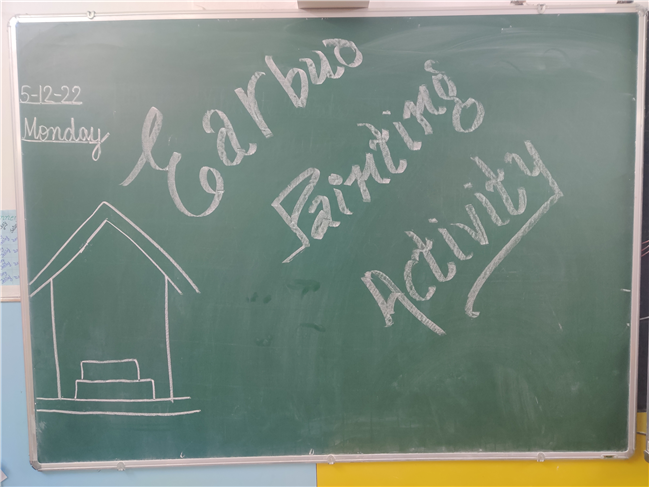 5-12-22
Monday
Earbud
Painting
Activity